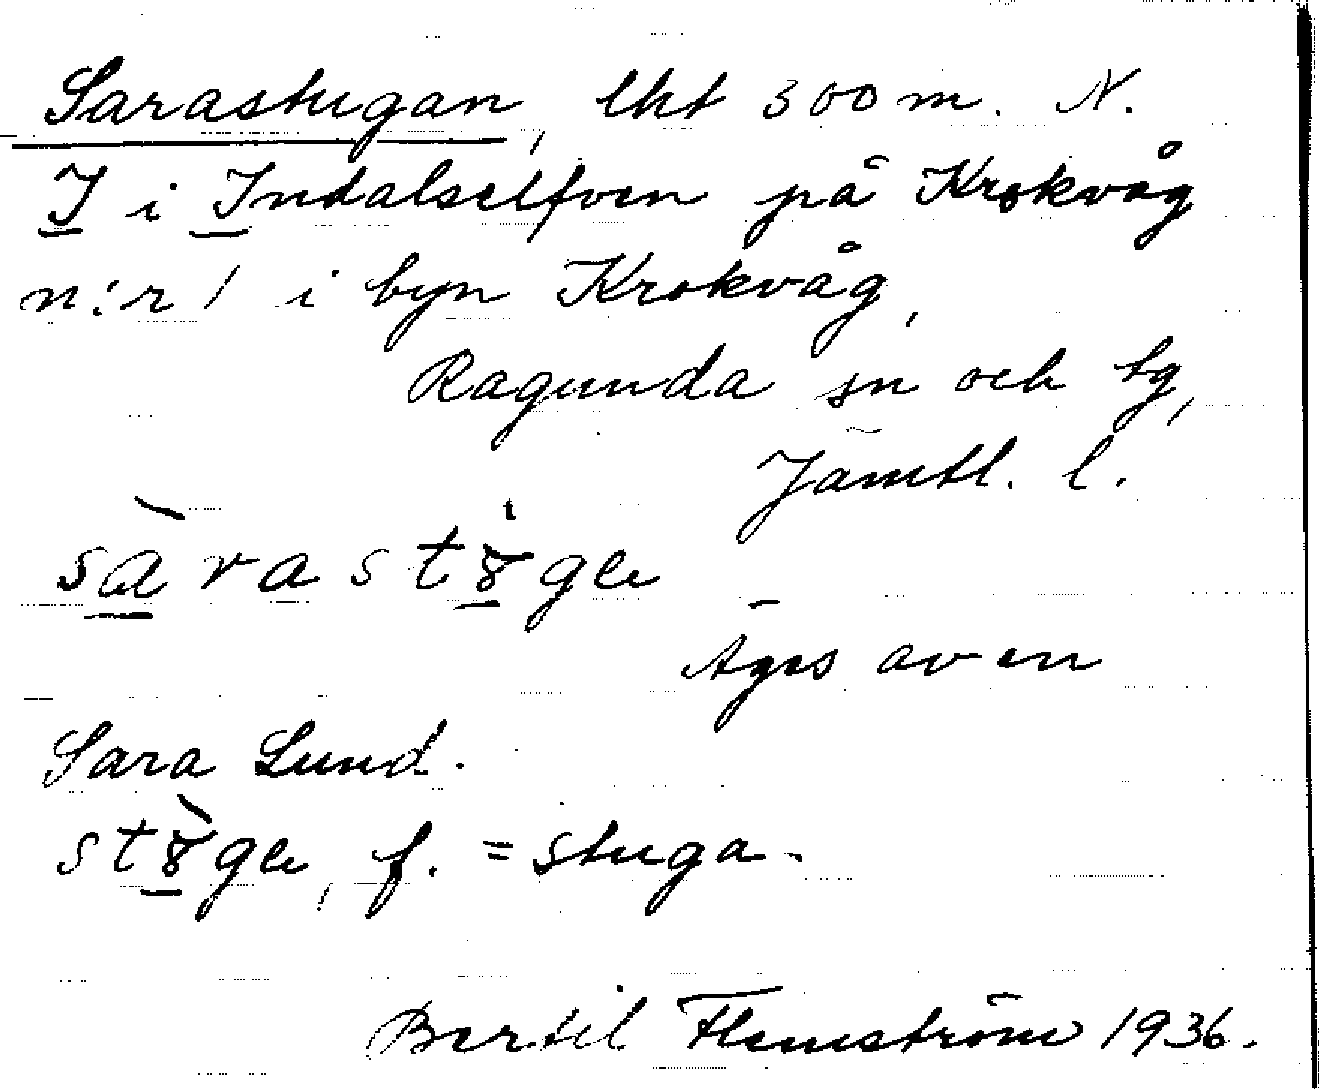 Sarastugan, lht 300 m. N.
I i Indalselfven på Krokvåg
n:r 1 i byn Krokvåg,
Ragunda sn och tg,
Jämtl. l.
Äges av en
Sara Lund.
f. = stuga.
Bertil Flemström 1936.